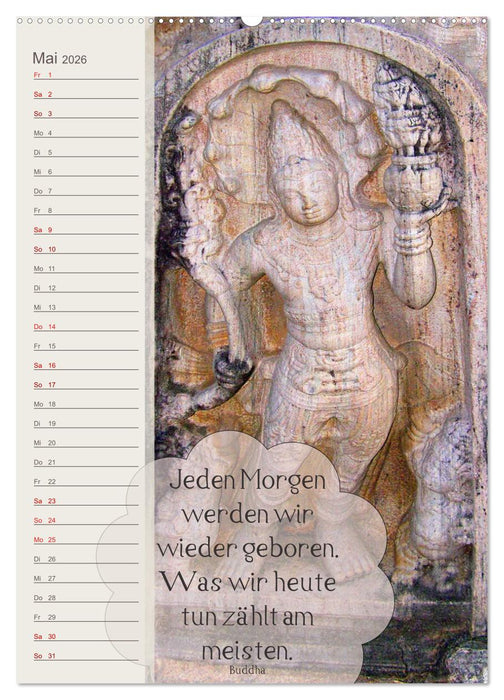 Mai 2026
Fr 1
Sa 2
So 3
Mo 4
Di 5
Mi 6
Do 7
Fr 8
Sa 9
So 10
Mo 11
Di 12
Mi 13
Do 14
Fr 15
Sa 16
So 17
Mo 18
Di 19
Mi 20
Do 21
Fr 22
Sa 23
So 24
Mo 25
Di 26
Mi 27
Do 28
Fr 29
Sa 30
So 31
Jeden Morgen
werden wir
wieder geboren.
Was wir heute
tun zählt am
meisten.
Buddha